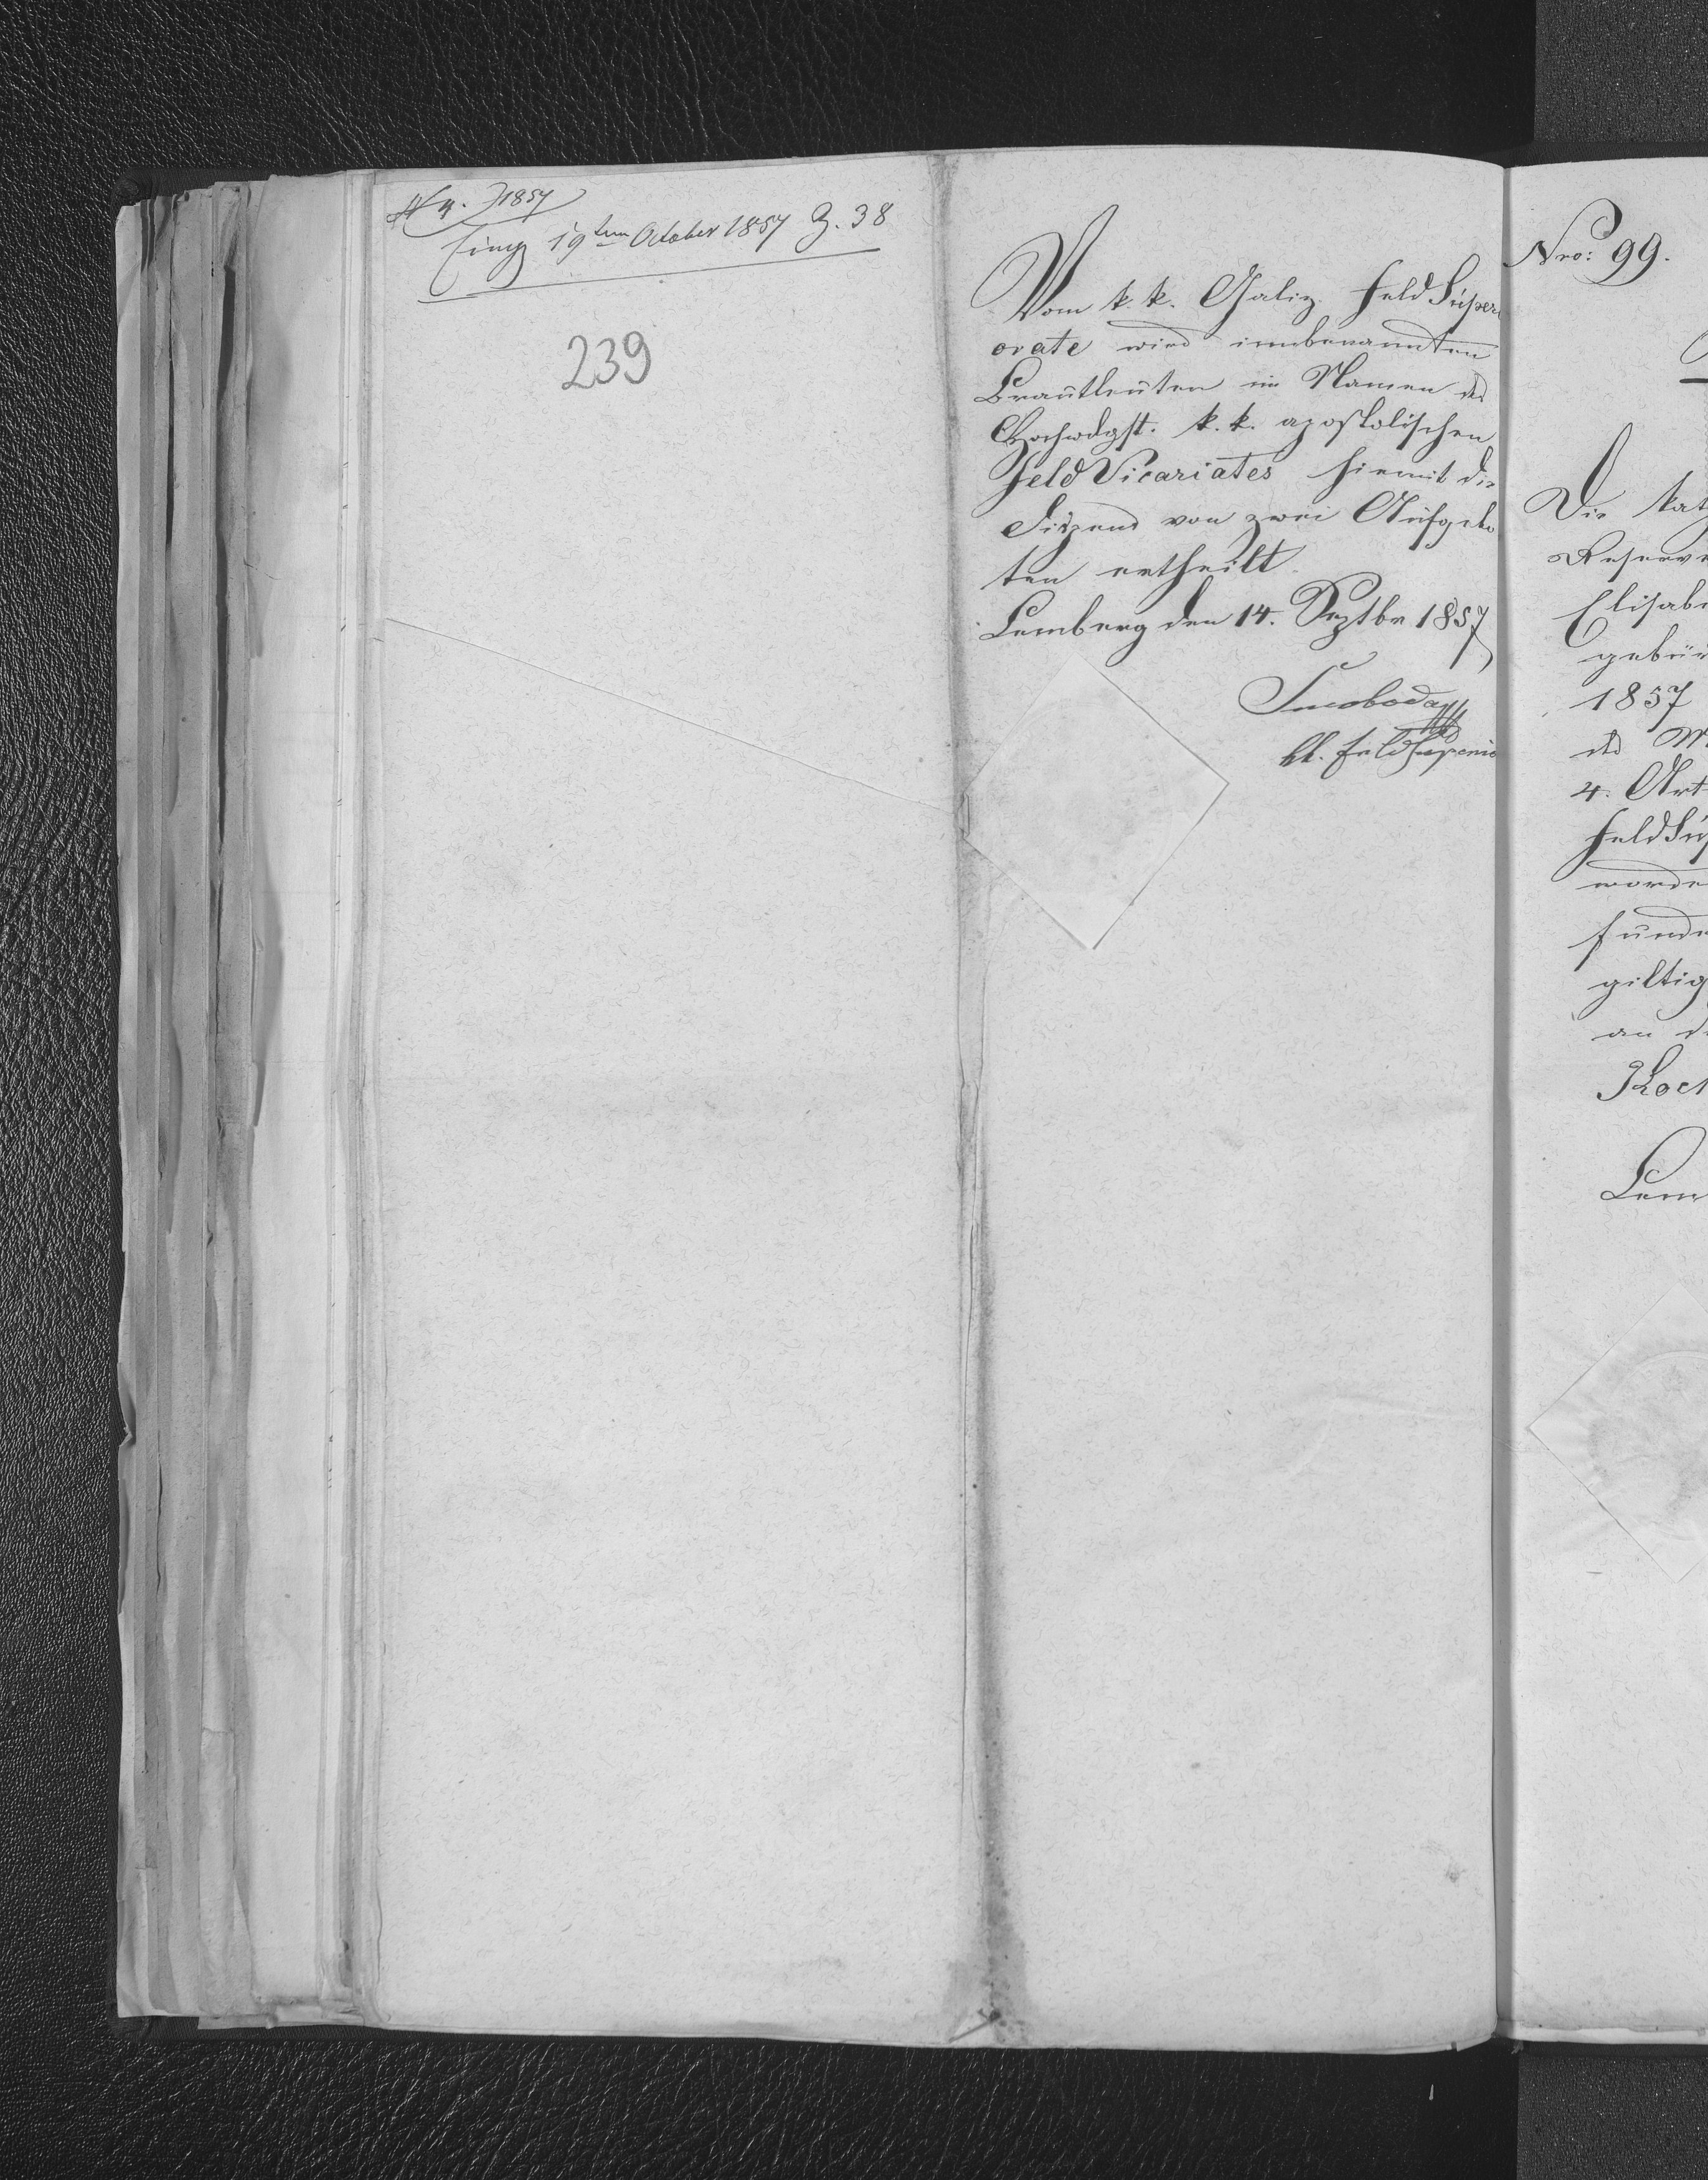 1857
Eing 19ten October 1857 Z. 38
239
Vom k. k. Galiz. Feld Superi
orate wird innbenannten
Brautleuten im Namen des
Hochwdgst. k. k. apostolischen
Feld Vicariates hiemit die
Dispens von zwei Aufgebo
ten ertheilt.
Lemberg den 14. Septbr 1857
Swoboda
kk. Feldsuperio
Nro: 99.
Die kat
Reserve
Elisabe
gebür
1857
des M
4. Art
Feld Su
worde
funde
giltig
an d
Koch
Lem